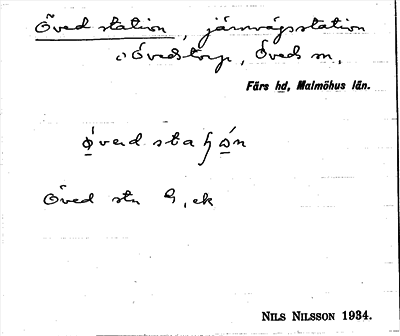 Öved station, järnvägsstation
Övedstorp, Öveds sn,
Färs hd, Malmöhus län.
Öved stn
NILS NILSSON 1934.